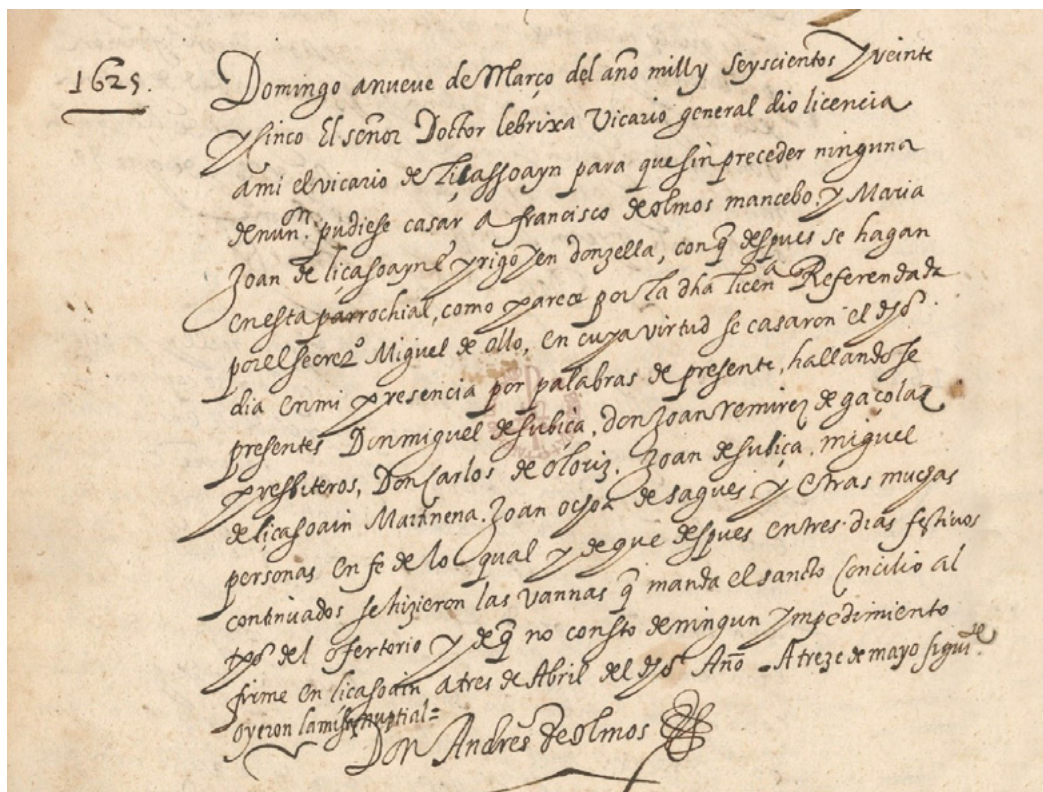 1625.
Domingo a nueve de Março del año mill y seyscientos y veinte
y sinco El señor Doctor lebrixa Vicario general dio licencia
a mi el vicario de liçassoayn para que sin preceder ninguna
denunᵒⁿ. pudiese casar a francisco de olmos mancebo, y Maria
Joan de liçasoayn e yrigoyen donzella, con q̃ despues se hagan
en esta parrochial, como parece por la dha licenᵃ Referendada
por el secretᵒ Miguel de ollo, en cuya virtud se casaron el dho
dia en mi presencia por palabras de presente, hallandose
presentes Don miguel de subiça, don Joan remirez de gaçolaz
presbiteros, Don Carlos de oloriz, Joan de subiça, miguel
de liçasoain Mariñena, Joan ochoa de sagues y otras muchas
personas en fe de lo qual y de que despues en tres dias festivos
continuados se hizieron las vannas q̃ manda el sancto Concilio al
tpõ del ofertorio y de q̃ no consto de ningun ympedimiento
firme en liçasoain a tres de Abril del dho Año - A treze de mayo siguiᵗᵉ.
oyeron la missa nuptial =
Don Andres de olmos